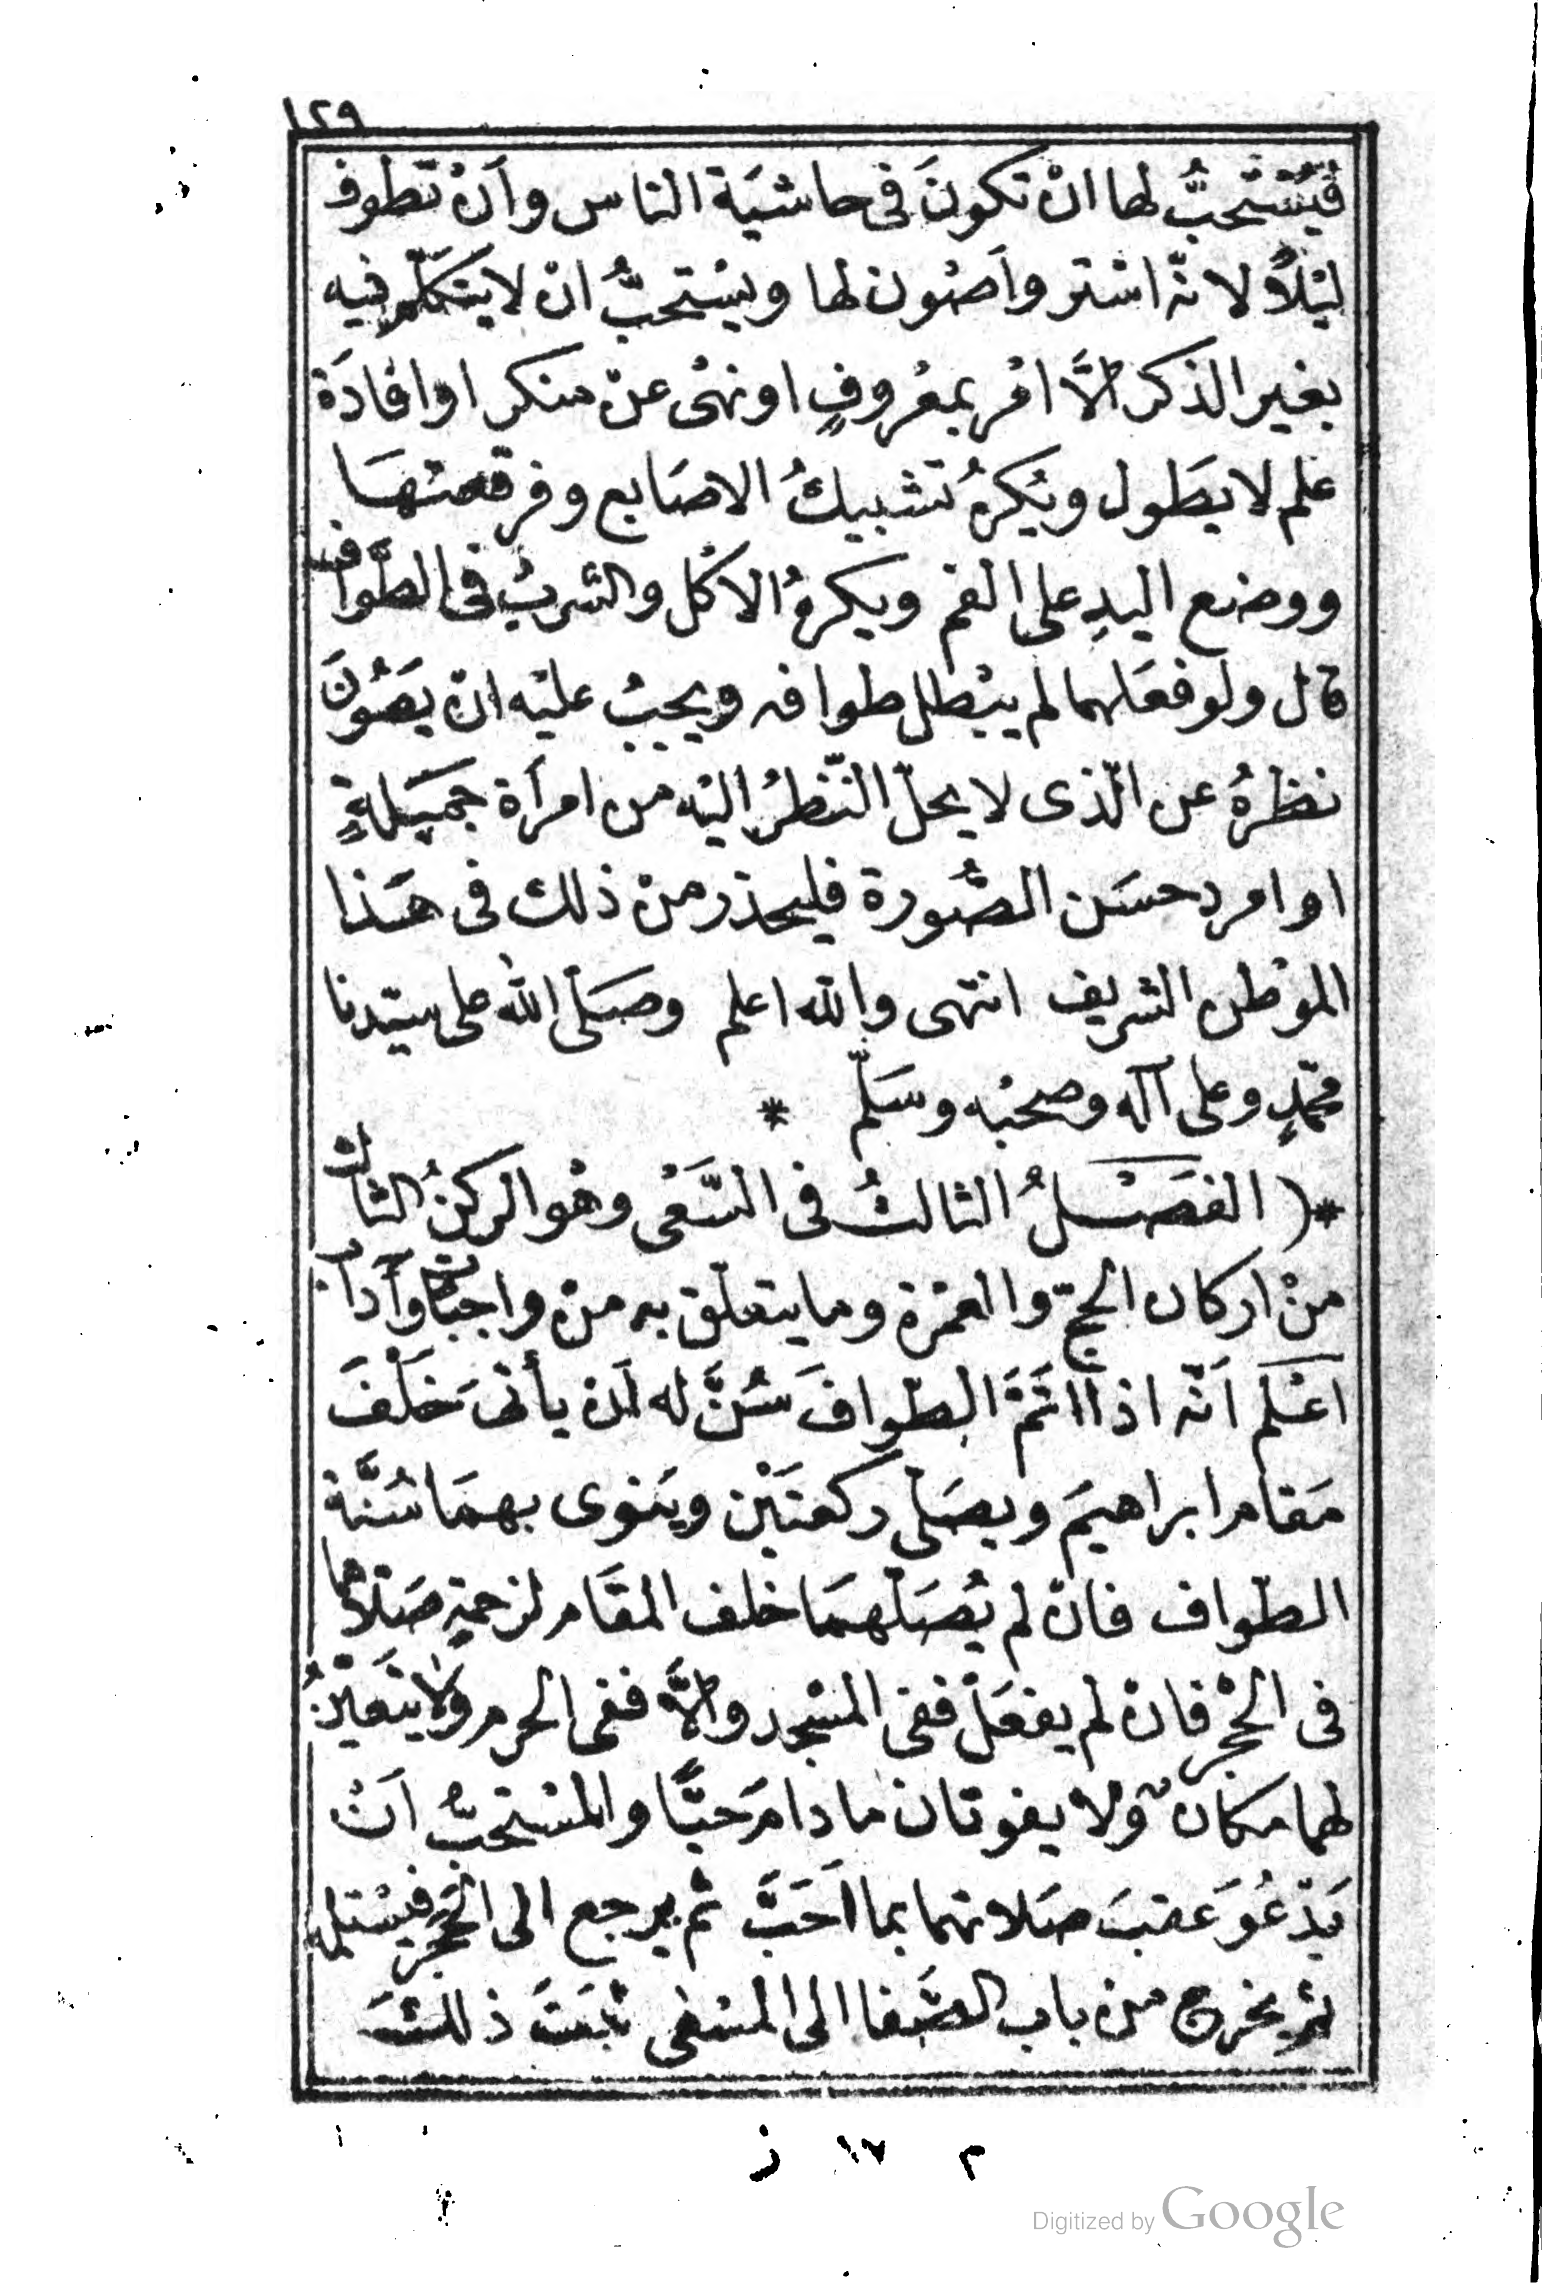 ١٢٩
فَيُسْتَحبُّ لها انْ تكونَ فى حاشيَة الناس وأَنْ تطوف
ليْلاً لانّه استر واَصْون لها ويسْتحبُّ انْ لا يتكلّم فيه
بغير الذكر الاَّ امْر بمعْروفٍ او نهْى عنْ منكر او افادَة
علم لا يطَول ويُكرهُ تشبيكُ الاصَابع وفرقعتهَا
ووضع اليدِ على الفم ويكرهُ الاكْل والشربُ فى الطَّواف
قال ولو فعَلهما لم يبْطل طوافه ويجبُ عليْه انْ يصُونَ
نظرهُ عن الّذى لا يحلّ النّظرُ اليْه من امرأَة جميَلةٍ
او امردِ حسَن الصُّورة فليحذر منْ ذلك فى هَذا
الموْطن الشريف انتهى والله اعلم وصَلّى اللهُ على سيّدنا
محمّدٍ وعلى آله وصحبْه وسَلّم *
*( الفصَـْـلُ الثالثُ فى السَّعْى وهْو الركنُ الثالث
منْ اركان الحجّ والعمْرة وما يتعلّق به منْ واجبات وآداب
اعْـلم اَنّه اذا اتَمَّ الطّوافَ سُنَّ له اَن يأتىَ خَلْفَ
مَقام ابراهيمَ ويصَلى ركعتَيْن وينَوى بهمَا سُنَّة
الطّواف فانْ لم يُصَلّهمَا خلف المقَام لزحمةٍ صَلاهما
فى الحْجْر فانْ لم يفعَلْ ففى المسْجد والاَّ ففى الحرم ولا يتعَيّنُ
لهما مكانٌ ولا يفوتان ما دامَ حيًّا والمسْتحبُّ اَنْ
يَدْعُوَ عقبَ صَلاتهما بما اَحَبَّ ثم يرجع الى الحَجَر فيسْتلمه
ثم يخرج منْ باب الصَّفا الى المسْعى ثبَتَ ذلكَ
م ١٧ ز
Digitized by Google